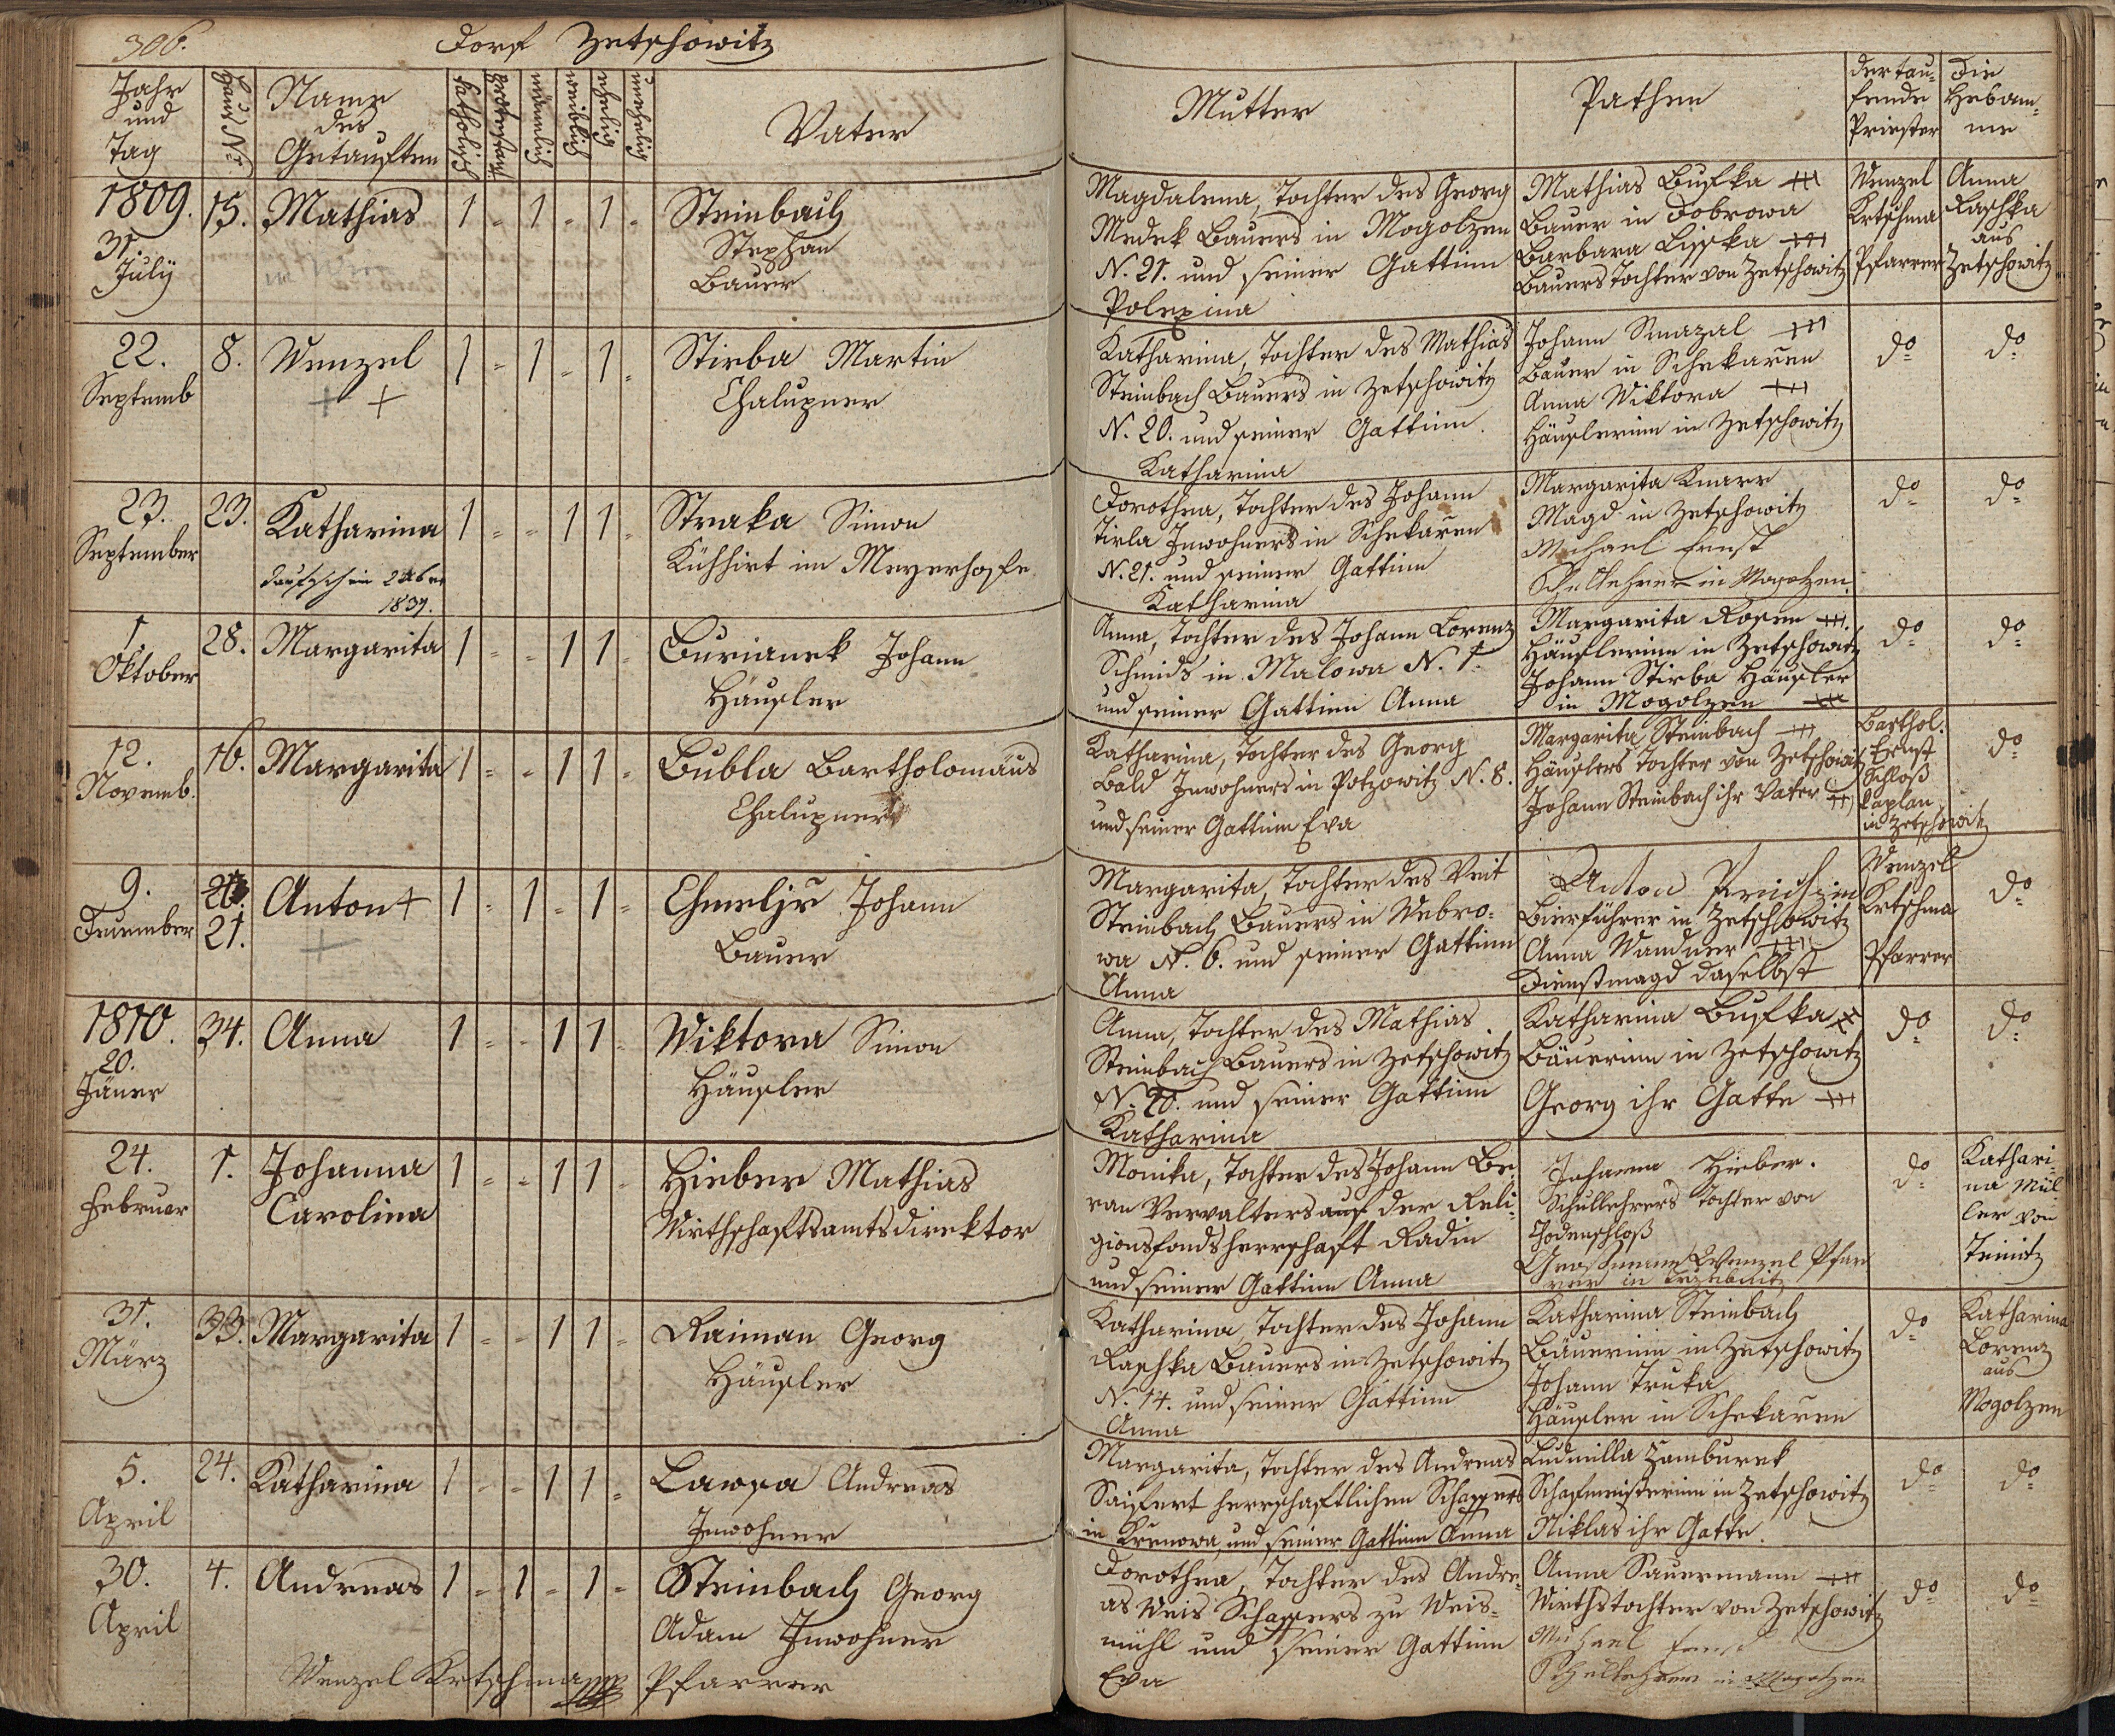 306.
Dorf Zetschowitz
Jahr und Tag
Haus Nr.
Name des Getauften
Katholisch
Protestant
männlich
weiblich
ehelich
unehelich
Vater
Mutter
Pathen
der taufende Priester
Die Hebamme
1809.
31.
July
15.
Mathias
1 - 1 - 1 -
Steinbach
Stephan
Bauer
Magdalena, Tochter des Georg
Medek Bauers in Mogolzen
N. 21. und seiner Gattinn
Polexina
Mathias Bufka +++
Bauer in Dobrowa
Barbara Lisska +++
Bauers Tochter von Zetschowitz
Wenzel
Krtschma
Pfarrer
Anna
Raschka
aus
Zetschowitz
22.
Septemb
8.
Wenzel
+ +
1 - 1 - 1 -
Stirba Martin
Chalupner
Katharina, Tochter des Mathias
Steinbach Bauers in Zetschowitz
N. 20. und seiner Gattinn.
Katharina
Johann Smazal +++
Bauer in Schekaren
Anna Viktora +++
Häuslerinn in Zetschowitz
do
do
23.
September
23.
Katharina
1837.
1 - - 1 1 -
Straka Simon
Kühhirt im Meyerhofe
Dorothea, Tochter des Johann
Tirla Inwohners in Schekaren
N. 21. und seiner Gattinn
Katharina
Margarita Knarr
Magd in Zetschowitz
Michael Ernst
Schullehrer in Mogolzen.
do
do
1.
Oktober
28.
Margarita
1 - - 1 1 -
Burianek Johann
Häusler
Anna, Tochter des Johann Lorenz
Schmids in Malowa N. 1.
und seiner Gattinn Anna
Margarita Rosen +++.
Häuslerinn in Zetschowitz
Johann Stirba Häusler
in Mogolzen +++
do
do
12.
Novemb.
16.
Margarita
1 - - 1 1 -
Bubla Bartholomäus
Chalupner
Katharina, Tochter des Georg
Bald Inwohners in Potzowitz N. 8.
und seiner Gattinn Eva
Margarita Steinbach +++
Häuslers Tochter von Zetschowitz
Johann Steinbach ihr Vater +++
Barthol.
Ernst
Schloß
Caplan
in Zetschowitz
do
9.
Dezember
21.
Anton +
+
1 - 1 - 1 -
Chmeljr Johann
Bauer
Margarita, Tochter des Veit
Steinbach Bauers in Webro-
wa N. 6. und seiner Gattinn
Anna
Anton
Bierführer in Zetschowitz
Anna Wandner +++
Dienstmagd daselbst
Wenzel
Krtschma
Pfarrer
do
1810.
20.
Jäner
34.
Anna
1 - - 1 1 -
Viktora Simon
Häusler
Anna, Tochter des Mathias
Steinbach Bauers in Zetschowitz
N. 20. und seiner Gattinn
Katharina
Katharina Bufka +++
Bäuerinn in Zetschowitz
Georg ihr Gatte +++
do
do
24.
Februar
1.
Johanna
Carolina
1 - - 1 1 -
Hieber Mathias
Wirthschaftsamtsdirektor
Monika, Tochter des Johann Be-
ran Verwalters auf der Reli-
gionsfondsherrschaft Radin
und seiner Gattinn Anna
Johanna Hieber.
Schullehrers Tochter von
Chodenschloß
Großmann Wenzel Pfar
rer in
do
Kathari-
na Mül-
ler von
Teinitz
31.
März
33.
Margarita
1 - - 1 1 -
Raiman Georg
Häusler
Katharina, Tochter des Johann
Raschka Bauers in Zetschowitz
N. 14. und seiner Gattinn
Anna
Katharina Steinbach
Bäuerinn in Zetschowitz
Johann Truka
Häusler in Schekaren
do
Katharina
Lorenz
aus
Mogolzen
5.
April
24.
Katharina
1 - - 1 1 -
Lawra Andreas
Inwohner
Margarita, Tochter des Andreas
Saifert herrschaftlichen Schaffers
in Krenowa, und seiner Gattinn Anna
Ludmilla Zamburek
Schafmeisterinn in Zetschowitz
Niklas ihr Gatte.
do
do
30.
April
4.
Andreas
1 - 1 - 1 -
Steinbach Georg
Adam Inwohner
Dorothea, Tochter des Andre-
as Weis Schaffers zu Weis-
mühl und seiner Gattinn
Eva
Anna Sauermann +++
Wirthstochter von Zetschowitz
Michael Ernst
Schullehrer in Mogolzen
do
do
Wenzel Krtschma Pfarrer